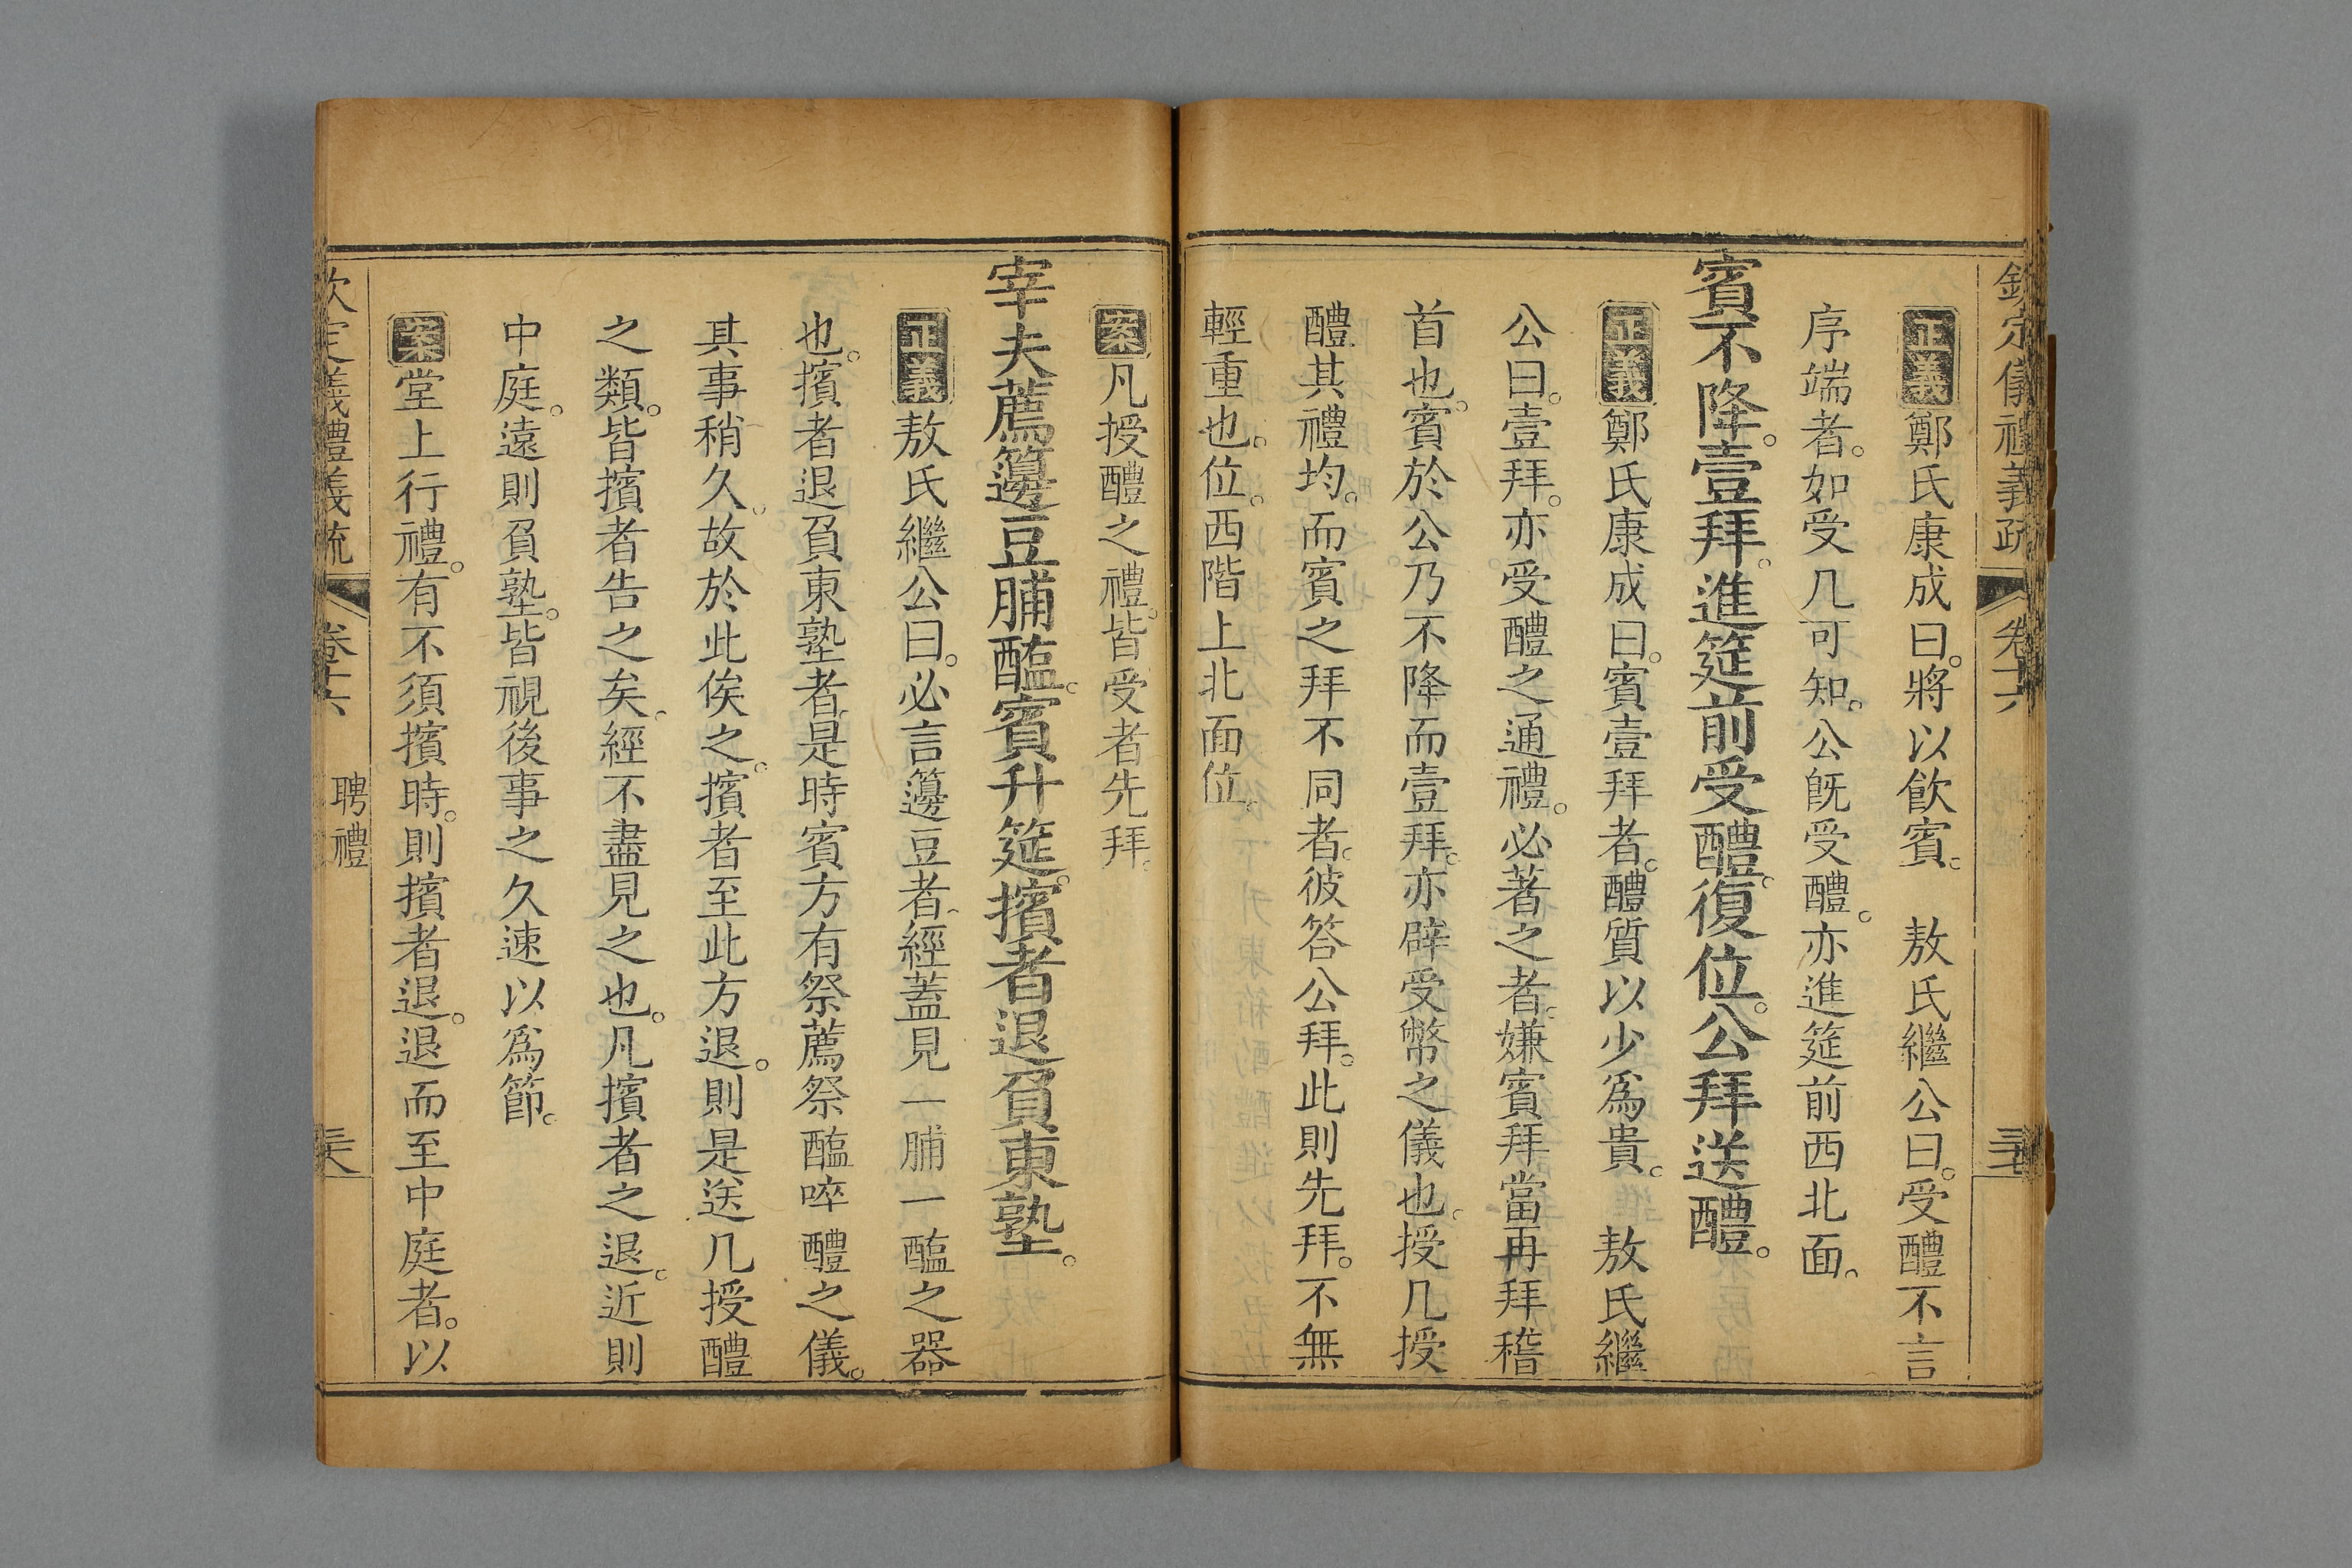 欽定儀禮義疏 卷十六
正義鄭氏康成曰。將以飲賓。 敖氏繼公曰。受醴不言
序端者。如受几可知。公旣受醴。亦進筵前西北面。
賓不降。壹拜。進筵前受醴。復位。公拜送醴。
正義鄭氏康成曰。賓壹拜者。醴質以少爲貴。 敖氏繼
公曰。壹拜。亦受醴之通禮。必著之者。嫌賓拜當再拜稽
首也。賓於公乃不降而壹拜。亦辟受幣之儀也。授几授
醴其禮均。而賓之拜不同者。彼答公拜。此則先拜。不無
輕重也。位。西階上北面位。
案凡授醴之禮。皆受者先拜。
宰夫薦籩豆脯醢。賓升筵。擯者退負東塾。
正義敖氏繼公曰。必言籩豆者。經蓋見一脯一醢之器
也。擯者退負東塾者。是時賓方有祭薦祭醢啐醴之儀。
其事稍久。故於此俟之。擯者至此方退。則是送几授醴
之類。皆擯者告之矣。經不盡見之也。凡擯者之退。近則
中庭。遠則負塾。皆視後事之久速以爲節。
案堂上行禮。有不須擯時。則擯者退。退而至中庭者。以
欽定儀禮義疏 卷十六 聘禮